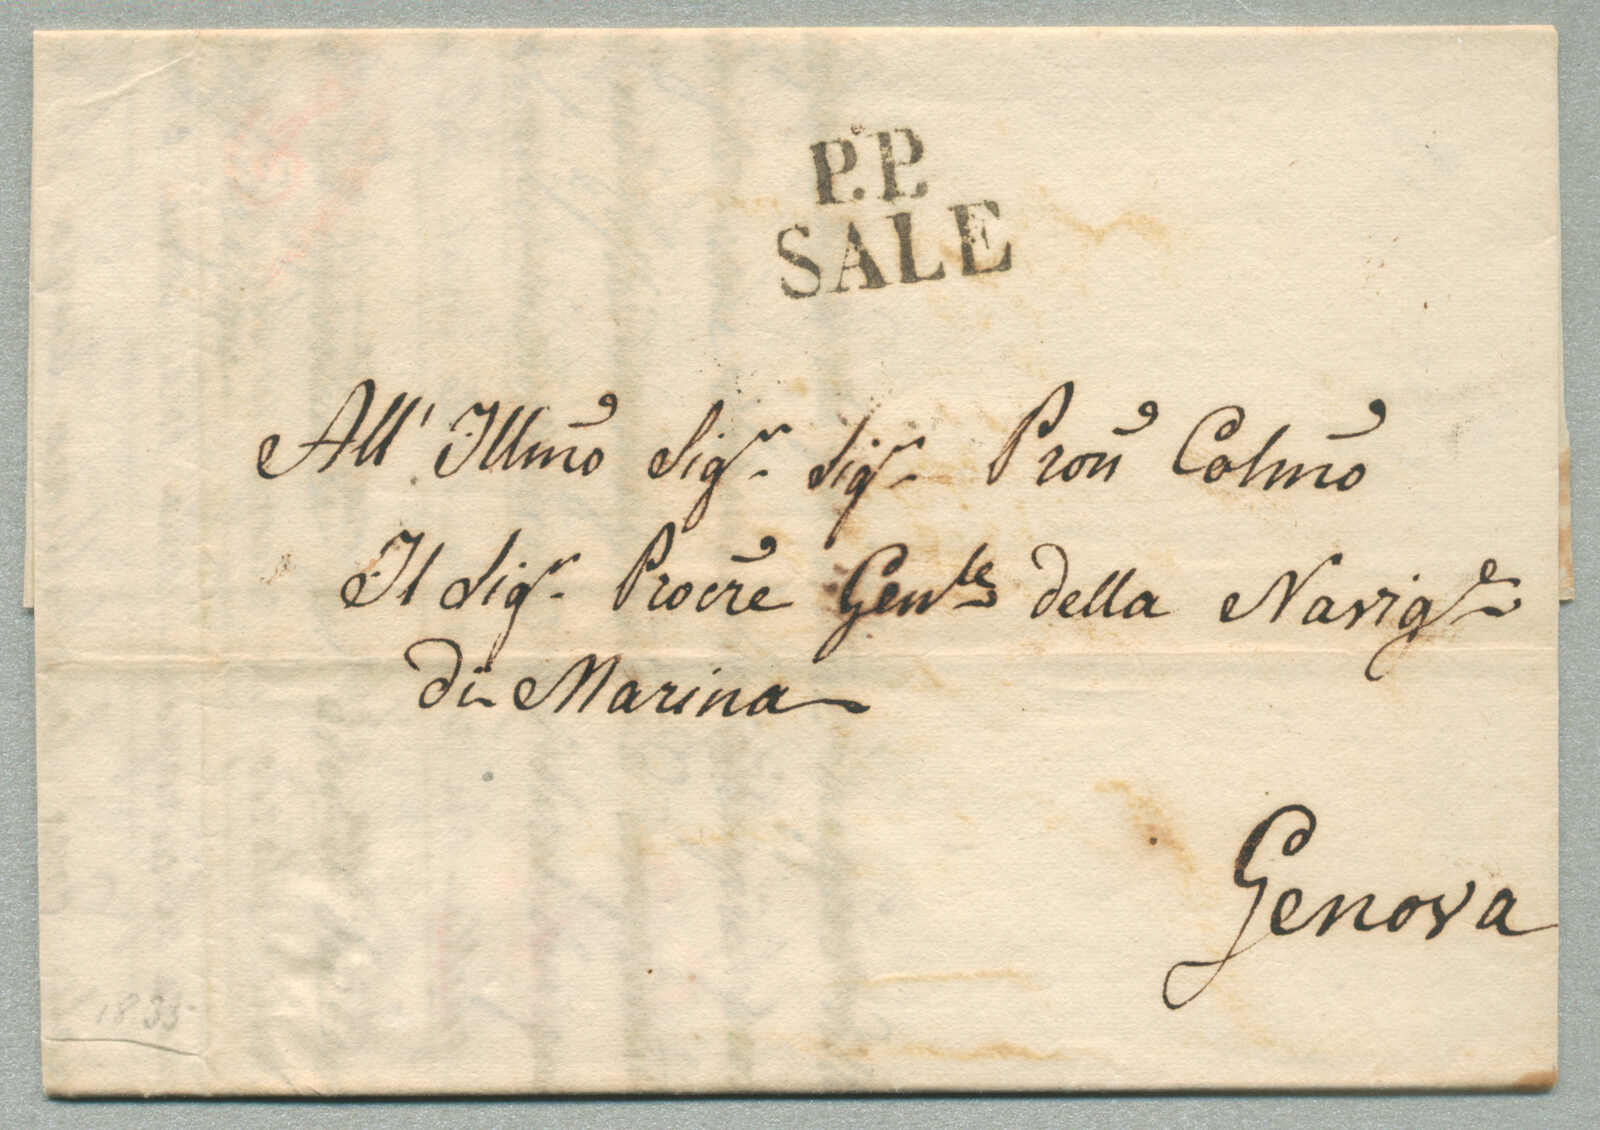 P.P.
SALE
All' Illmo Sigr. Sigr. Pron Colmo
Il Sigr. Procre Genle della Navige
di Marina
Genova
1835